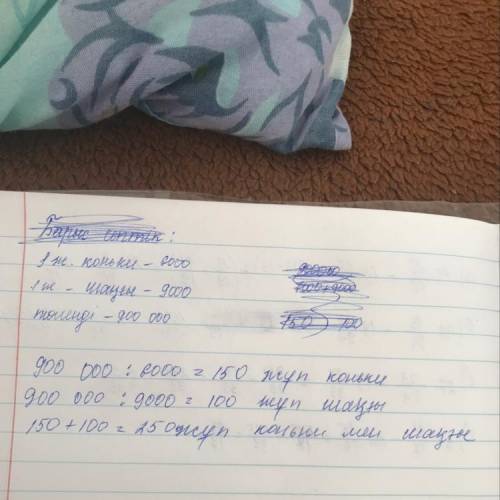 Барыс септік:
1 ж. коньки – 6000
1 ж – шаңғы – 9000
төленді – 900 000
150 100
900 000 : 6000 = 150 жұп коньки
900 000 : 9000 = 100 жұп шаңғы
150 + 100 = 250 жұп коньки мен шаңғы